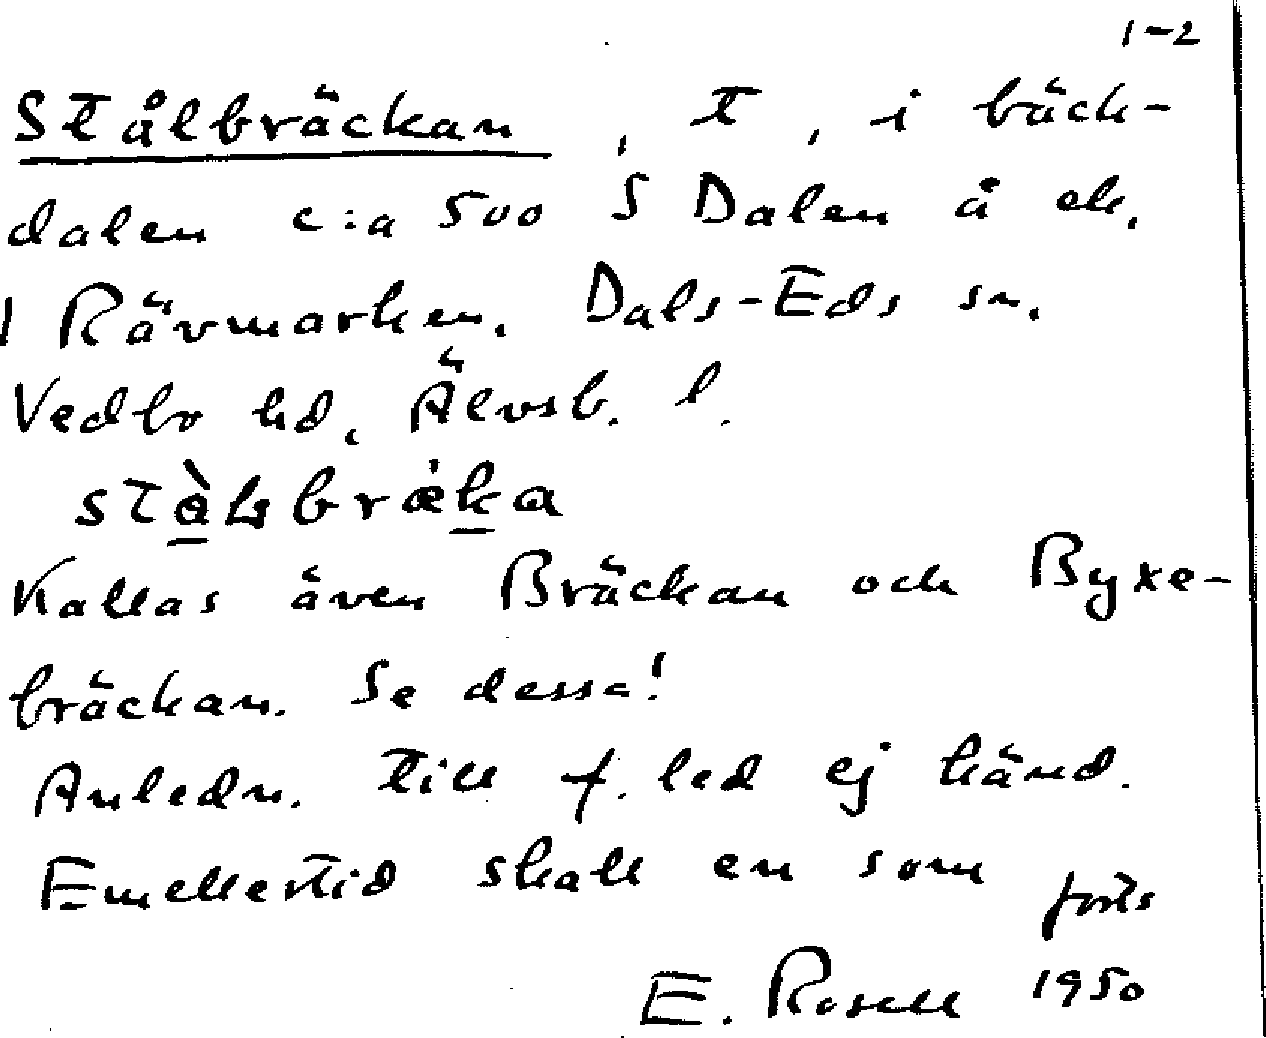 1-2
Stålbräckan, t, i bäck-
dalen c:a 500 S Dalen å ek.
1 Rävmarken. Dals-Eds sn.
Vedbo hd, Älvsb. l.
Kallas även Bräckan och Byxe-
bräckan. Se dessa!
Anledn. till f. led ej känd.
Emellertid skall en som forts
E. Rosell 1950